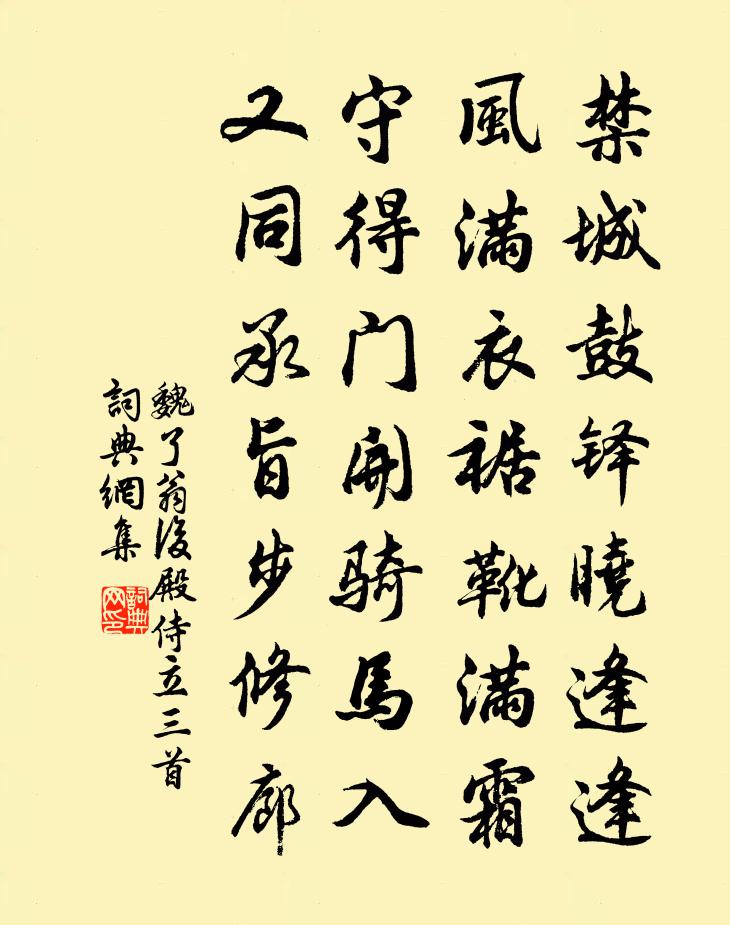 禁城鼓铎曉逢逢
風滿衣裾靴滿霜
守得门開騎馬入
又同承旨步修廊
魏了翁後殿侍立三首
詞典網集
詞典网印